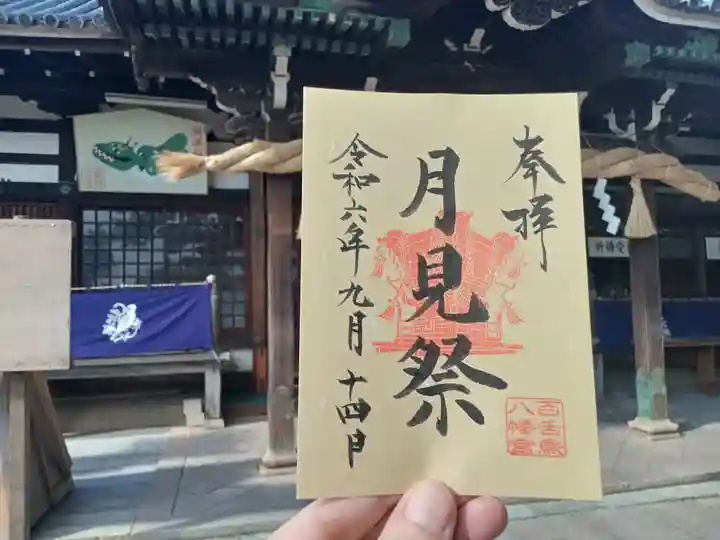 奉祥
月見祭
令和六年九月十四日
八幡宮
祈祷受